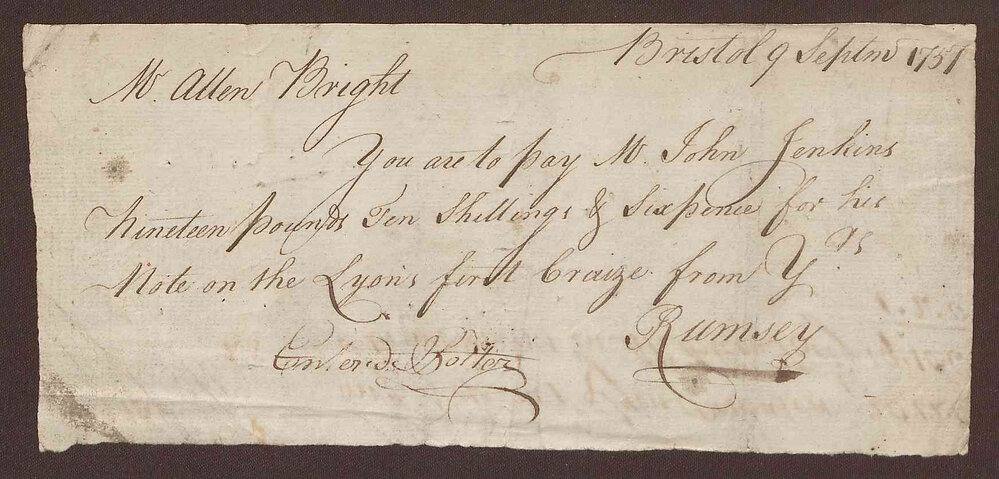 Bristol 9 Septm 1757
Mr. Allen Bright
You are to pay Mr. John Jenkins
Nineteen pounds Ten Shillings & Sixpence for his
Note on the Lyons first Cruize from Yrs
Rumsey